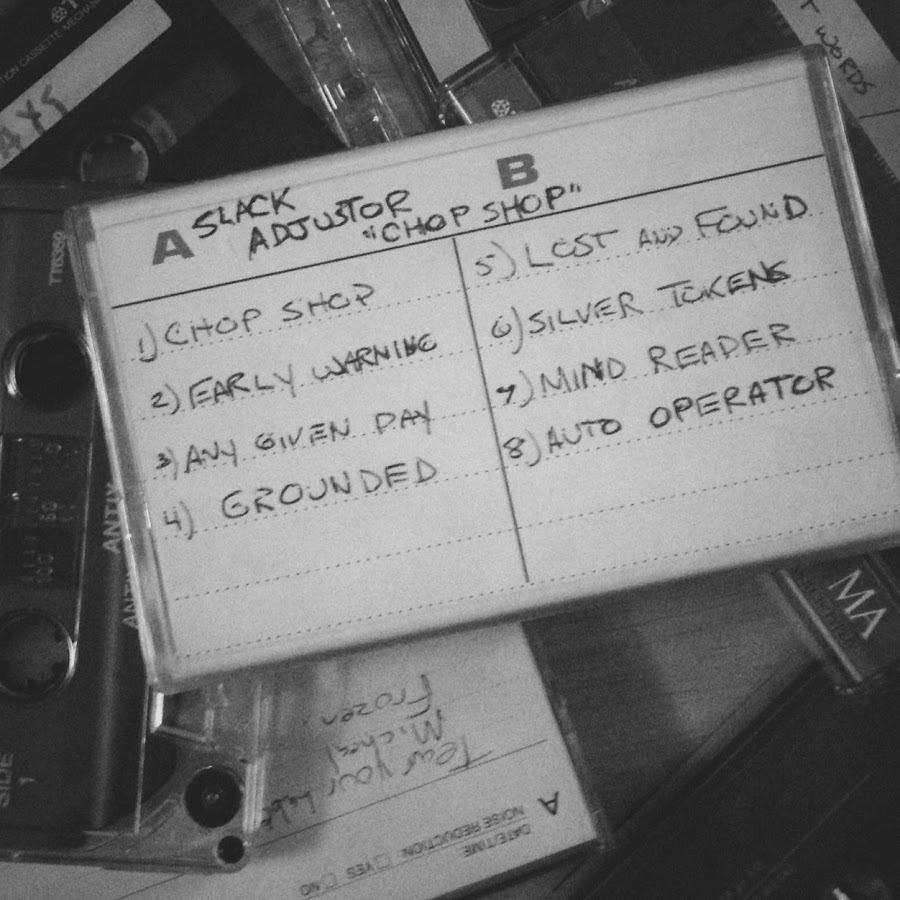 T WORDS
B
A SLACK
ADJUSTOR
"CHOP SHOP"
1) CHOP SHOP
2) EARLY WARNING
3) ANY GIVEN DAY
4) GROUNDED
5) LOST AND FOUND
6) SILVER TOKENS
7) MIND READER
8) AUTO OPERATOR
MA
ANTIX
100 50
SIDE
1
A
DATE/TIME
NOISE REDUCTION □ YES □ NO
Tear your
Micheal
Frozen